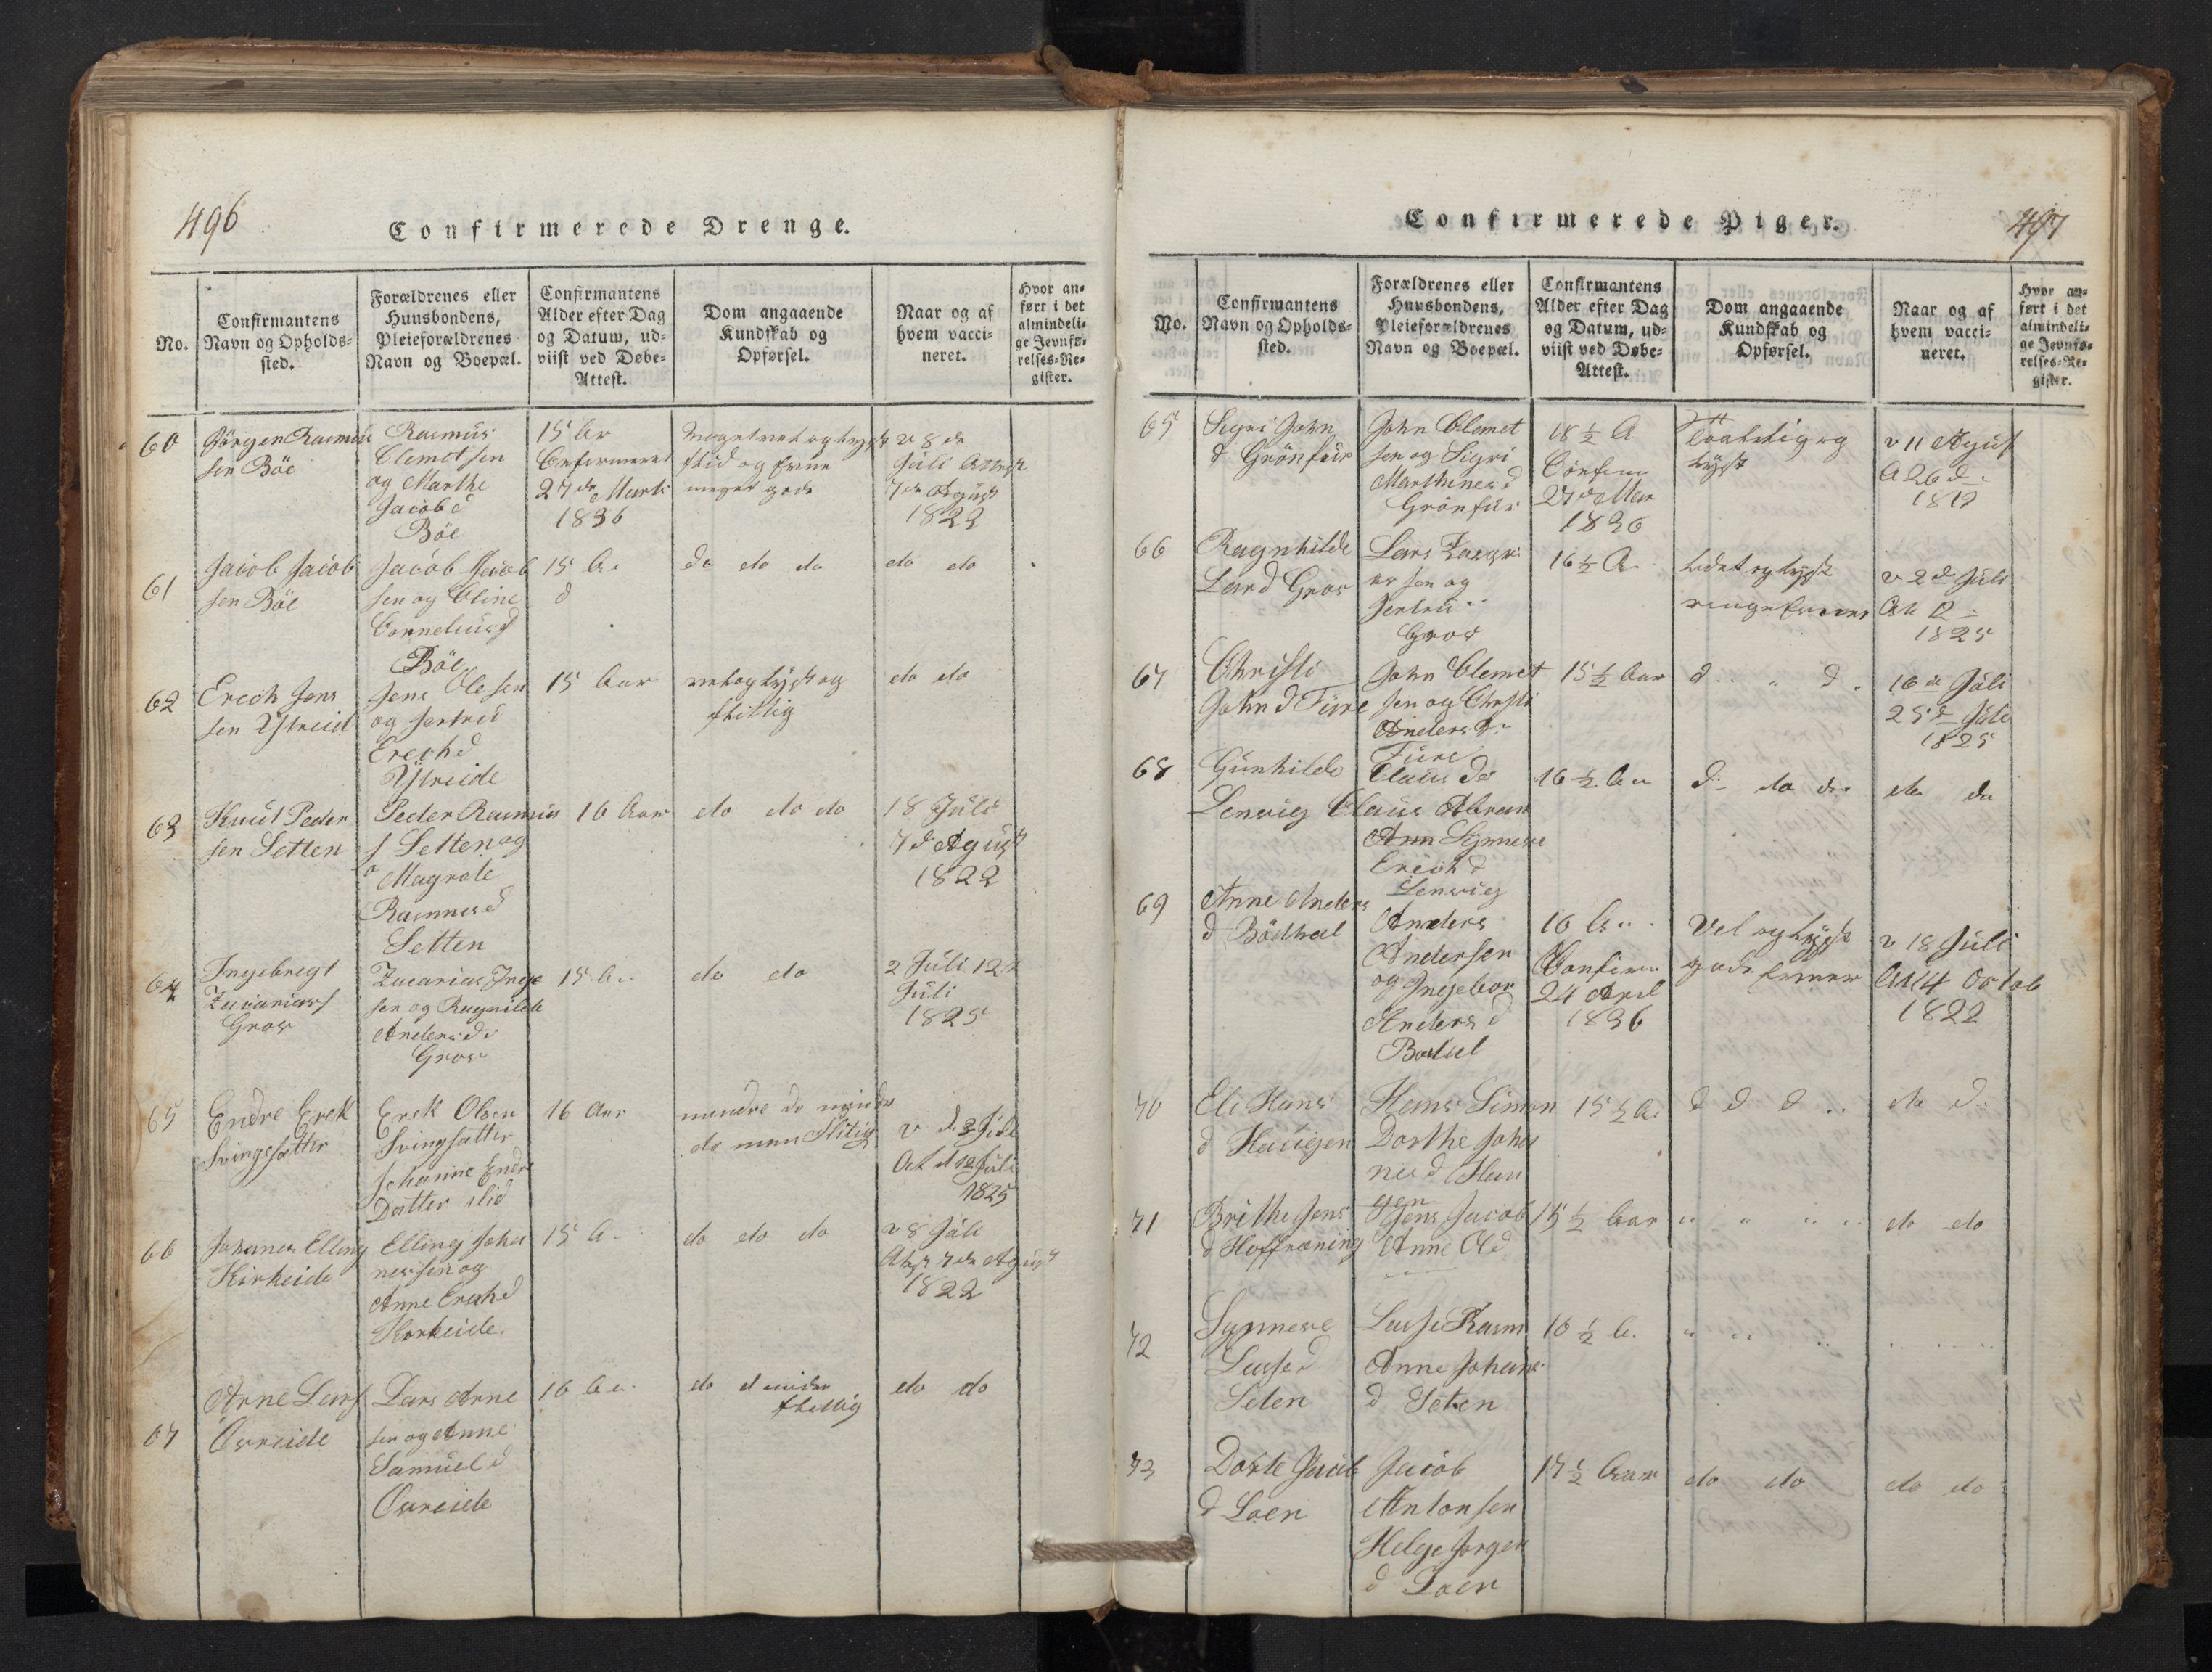 496
Confirmerede Drenge.
No.
Confirmantens
Navn og Opholds-
sted.
Forældrenes eller
Huusbondens,
Pleieforældrenes
Navn og Boepæl.
Confirmantens
Alder efter Dag
og Datum, ud-
viist ved Døbe-
Attest.
Dom angaaende
Kundskab og
Opførsel.
Naar og af
hvem vacci-
neret.
Hvor an-
ført i det
almindeli-
ge Jevnfø-
relses-Re-
gister.
60
Jörgen Rasmus
sen Böe
Rasmus
Clemetsen
og Marthe
Jacobd
Böe
15 Ar
Confirmeret
27de Marts
1836
Meget vel og lyst
flid og Evne
meget gode
v 8 de
Juli Attest
7de Agust
1822
61
Jacob Jacob
sen Böe
Jacob Jacob
sen og Eline
Cornelius d
Böe
15 A.
d
do do do
do do
62
Erech Jens
sen Ystreid
Jens Olesen
og Jertrud
Erechd
Ystreide
15 Aar
vel og lyst og
flittig
do do
63
Knut Peder
sen Setten
Peder Rasmus
s Setten og
Magrete
Rasmusd
Setten
16 Aar
do do do
18 Juli
7 d Agust
1822
64
Ingebregt
Zacariass
Gror
Zacarias Inge
sen og Ragnilde
Andersd
Gror
15 A.
do do
2 Juli 12
Juli
1825
65
Endre Erek
Svingsætter
Erek Olsen
Svingsætter
Johanne Endre
Datter ibid
16 Aar
mindre do
do men flitig
v d 2 Juli
At d 12 Juli
1825
66
Johanes Elling
Kirkeide
Elling Joha
nessen og
Anne Erechd
Korkeide
15 A.
do do do
v 8 Juli
Atest 7de Agust
1822
67
Arne Lars
Övreide
Lars Arne
sen og Anne
Samueld
Övreide
16 A.
do d mider
flittig
do do
Confirmerede Piger.
497
No.
Confirmantens
Navn og Opholds-
sted.
Forældrenes eller
Huusbondens,
Pleieforældrenes
Navn og Boepæl.
Confirmantens
Alder efter Dag
og Datum, ud-
viist ved Døbe-
Attest.
Dom angaaende
Kundskab og
Opførsel.
Naar og af
hvem vacci-
neret.
Hvor an-
ført i det
almindeli-
ge Jevnfø-
relses-Re-
gister.
65
Sigri John
d Grönfur
John Clemet
sen og Sigri
Marthinesd
Grönfur
18 ½ A
Confirm
27 d Mar
1836
lyst
v 11 Agust
A 26 d
66
Ragnhilde
Larsd Gror
Lars
sen og
Jertru
Gror
16 ½ A
Lidet og lyst
ringe Evner
v 2 d Juli
At 12
1825
67
Christi
Johnd Furre
John Clemet
sen og Christi
Andersd
Fure
15 ½ Aar
d " d
16 de Juli
25 d Juli
1825
68
Gunhilde
Lenvig
Claus d
Claus Abram
Synneve
Erechd
Lenvig
16 ½ A
d do d
do do
69
Anne Anders
d Bödhal
Anders
Andersen
og Ingebor
Andersd
Bodal
16 A
Confirm
24 April
1836
Vel og lyst
gode Evner
v 18 Juli
At 4 Octob
1822
70
Eli Hans
d Haugen
Hans Simon
Dorthe Joha
nesd Hau
gen
15 ½ A.
d d d
do d
71
Brithe Jens
d Hoffræning
Jens Jacob
Anne Old
15 ½ Aar
" " " "
do do
72
Synneve
Lassed
Seten
Lasse Rasm
Anne Johane
d Seten
16 ½ A.
73
Dorte Jacob
d Loen
Jacob
Antonsen
Helge Jorgen
d Loen
15 ½ Aar
do do
do do